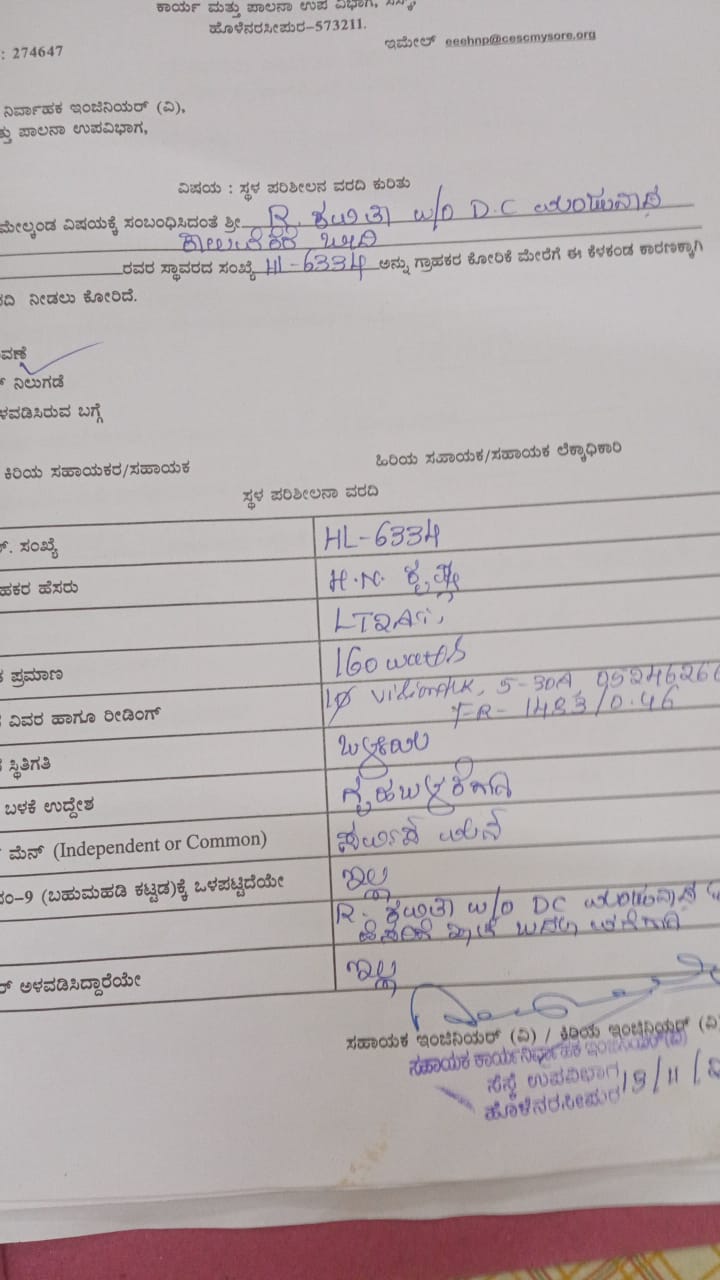 ಕಾರ್ಯ ಮತ್ತು ಪಾಲನಾ ಉಪ ವಿಭಾಗ,
ಹೊಳೆನರಸೀಪುರ-573211.
: 274647 ಇಮೇಲ್ eeehnp@cescmysore.org
ನಿರ್ವಾಹಕ ಇಂಜಿನಿಯರ್ (ವಿ),
ತ್ತು ಪಾಲನಾ ಉಪವಿಭಾಗ,
ವಿಷಯ : ಸ್ಥಳ ಪರಿಶೀಲನ ವರದಿ ಕುರಿತು
ಮೇಲ್ಕಂಡ ವಿಷಯಕ್ಕೆ ಸಂಬಂಧಿಸಿದಂತೆ ಶ್ರೀ R. ಕವಿತಾ W/O D.C ಮಂಜುನಾಥ
ಬೀದಿ
ರವರ ಸ್ಥಾವರದ ಸಂಖ್ಯೆ HL-6334 ಅನ್ನು ಗ್ರಾಹಕರ ಕೋರಿಕೆ ಮೇರೆಗೆ ಈ ಕೆಳಕಂಡ ಕಾರಣಕ್ಕಾಗಿ
ದಿ ನೀಡಲು ಕೋರಿದೆ.
ವಣೆ
್ ನಿಲುಗಡೆ
ಳವಡಿಸಿರುವ ಬಗ್ಗೆ
ಕಿರಿಯ ಸಹಾಯಕರ/ಸಹಾಯಕ ಹಿರಿಯ ಸಹಾಯಕ/ಸಹಾಯಕ ಲೆಕ್ಕಾಧಿಕಾರಿ
ಸ್ಥಳ ಪರಿಶೀಲನಾ ವರದಿ
್. ಸಂಖ್ಯೆ HL-6334
ಹಕರ ಹೆಸರು H.N. ಕೃಷ್ಣ
LT2A
ಪ್ರಮಾಣ 160 watts
ವಿವರ ಹಾಗೂ ರೀಡಿಂಗ್ 1Ø 5-30A,
FR- 1483/0.46
ಸ್ಥಿತಿಗತಿ
ಬಳಕೆ ಉದ್ದೇಶ ಗೃಹಬಳಕೆಗಾಗಿ
ಮೆನ್ (Independent or Common)
ನಂ-9 (ಬಹುಮಹಡಿ ಕಟ್ಟಡ)ಕ್ಕೆ ಒಳಪಟ್ಟಿದೆಯೇ ಇಲ್ಲ
R. ಕವಿತಾ W/O DC ಮಂಜುನಾಥ
ಹೆಸರಿಗೆ ಖಾತೆ ಬದಲಾವಣೆಗಾಗಿ
್ ಅಳವಡಿಸಿದ್ದಾರೆಯೇ ಇಲ್ಲ
ಸಹಾಯಕ ಇಂಜಿನಿಯರ್ (ವಿ) / ಕಿರಿಯ ಇಂಜಿನಿಯರ್ (ವಿ
ಸಹಾಯಕ ಕಾರ್ಯನಿರ್ವಾಹಕ ಇಂಜಿನಿಯರ್(ವಿ)
ಸೆಸ್ಕ್ ಉಪವಿಭಾಗ
ಹೊಳೆನರಸೀಪುರ 19/11/2